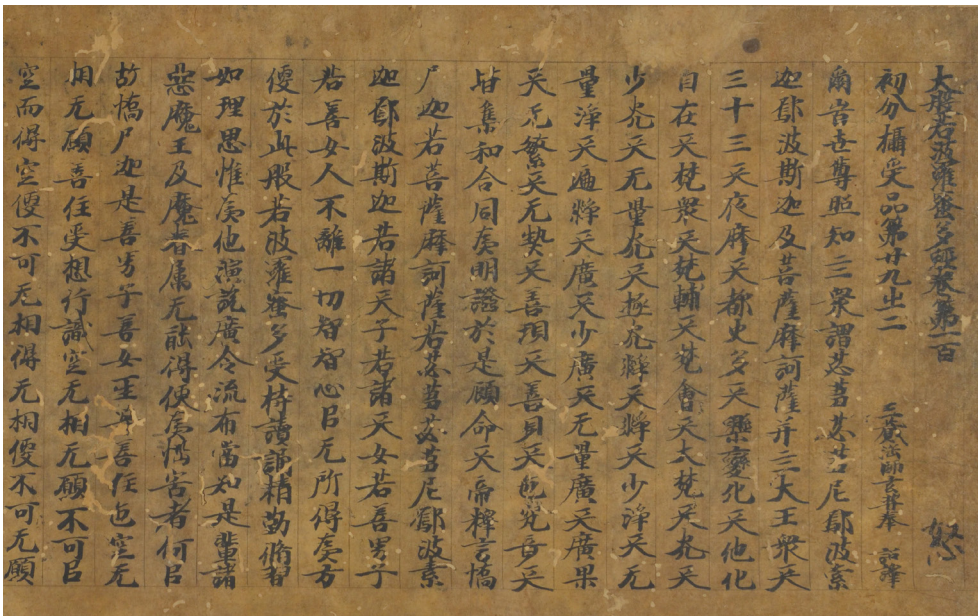 大般若波羅蜜多經卷第一百 恕
初分攝受品第廿九之二 三藏法師玄奘奉 詔譯
爾時世尊照知四衆謂苾芻苾芻尼鄔波索
迦鄔波斯迦及菩薩摩訶薩并四大王衆天
三十三天夜摩天都史多天樂變化天他化
自在天梵衆天梵輔天梵會天大梵天光天
少光天无量光天極光淨天淨天少淨天无
量淨天遍淨天廣天少廣天无量廣天廣果
天无繁天无熱天善現天善見天色究竟天
皆集和合同爲明證於是顧命天帝釋言憍
尸迦若菩薩摩訶薩若苾芻苾芻尼鄔波索
迦鄔波斯迦若諸天子若諸天女若善男子
若善女人不離一切智智心以无所得爲方
便於此般若波羅蜜多受持讀誦精勤脩學
如理思惟爲他演說廣令流布當知是輩諸
惡魔王及魔眷属无能得便爲惱害者何以
故憍尸迦是善男子善女人等善住色空无
相无願善住受想行識空无相无願不可以
空而得空便不可无相得无相便不可无願